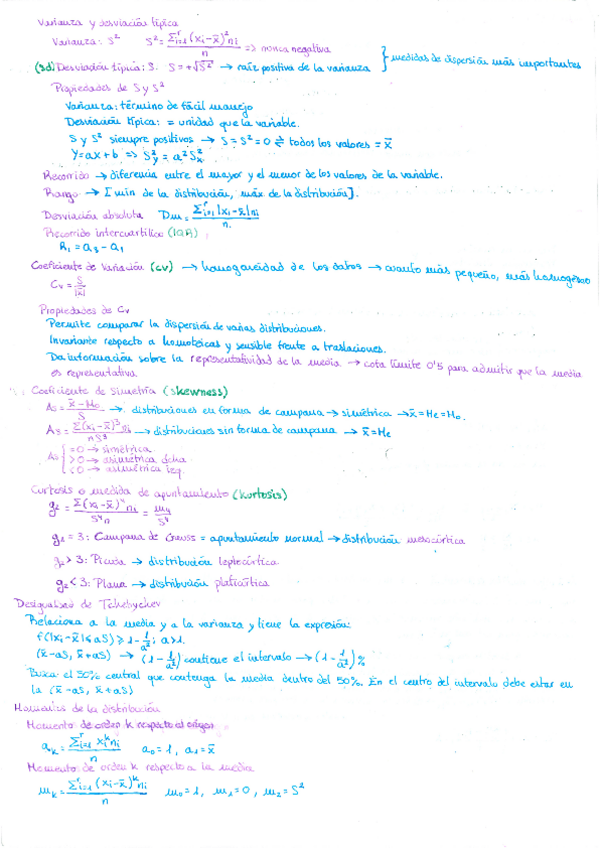 Varianza y desviación típica
Varianza: S² S² = Σʳᵢ₌₁(xᵢ-x̄)²nᵢ / n => nunca negativa
(sd) Desviación típica: S. S = +√S² → raíz positiva de la varianza } medidas de dispersión más importantes
Propiedades de S y S²
Varianza: término de fácil manejo
Desviación típica: = unidad que la variable.
S y S² siempre positivos → S = S² = 0 ⇌ todos los valores = x̄
Y = ax + b => S²y = a² S²x
Recorrido → diferencia entre el mayor y el menor de los valores de la variable.
Rango → [min de la distribución, máx. de la distribución].
Desviación absoluta Dm = Σʳᵢ₌₁|xᵢ-x̄|nᵢ / n
Recorrido intercuartílico (IQR)
R₁ = a₃ - a₁
Coeficiente de Variación (CV) → homogeneidad de los datos → cuanto más pequeño, más homogéneo
Cv = S / |x̄|
Propiedades de Cv
Permite comparar la dispersión de varias distribuciones.
Invariante respecto a homotecias y sensible frente a traslaciones.
Da información sobre la representatividad de la media → cota límite 0'5 para admitir que la media
es representativa.
Coeficiente de Simetría (skewness)
As = x̄ - Mo / S → distribuciones en forma de campana → simétrica → x̄ = Me = Mo.
As = Σ(xᵢ-x̄)³nᵢ / nS³ → distribuciones sin forma de campana → x̄ = Me
As { = 0 → simétrica
> 0 → asimétrica dcha.
< 0 → asimétrica izq.
Curtosis o medida de apuntamiento (kurtosis)
g₂ = Σ(xᵢ-x̄)⁴nᵢ / S⁴n = m₄ / S⁴
g₂ = 3: Campana de Gauss = apuntamiento normal → distribución mesocúrtica
g₂ > 3: Picuda → distribución leptocúrtica.
g₂ < 3: Plana → distribución platicúrtica
Desigualdad de Tchebychev
Relaciona a la media y a la varianza y tiene la expresión:
f(|xᵢ-x̄| ≤ aS) ≥ 1 - 1/a²; a>1.
(x̄-aS, x̄+aS) → (1 - 1/a²) contiene el intervalo → (1 - 1/a²)%
Busca el 50% central que contenga la media dentro del 50%. En el centro del intervalo debe estar en
la (x̄-aS, x̄+aS)
Momentos de la distribución
Momento de orden k respecto al origen
aₖ = Σʳᵢ₌₁ xᵢᵏ nᵢ / n a₀ = 1, a₁ = x̄
Momento de orden k respecto a la media
mₖ = Σʳᵢ₌₁(xᵢ-x̄)ᵏ nᵢ / n m₀ = 1, m₁ = 0, m₂ = S²